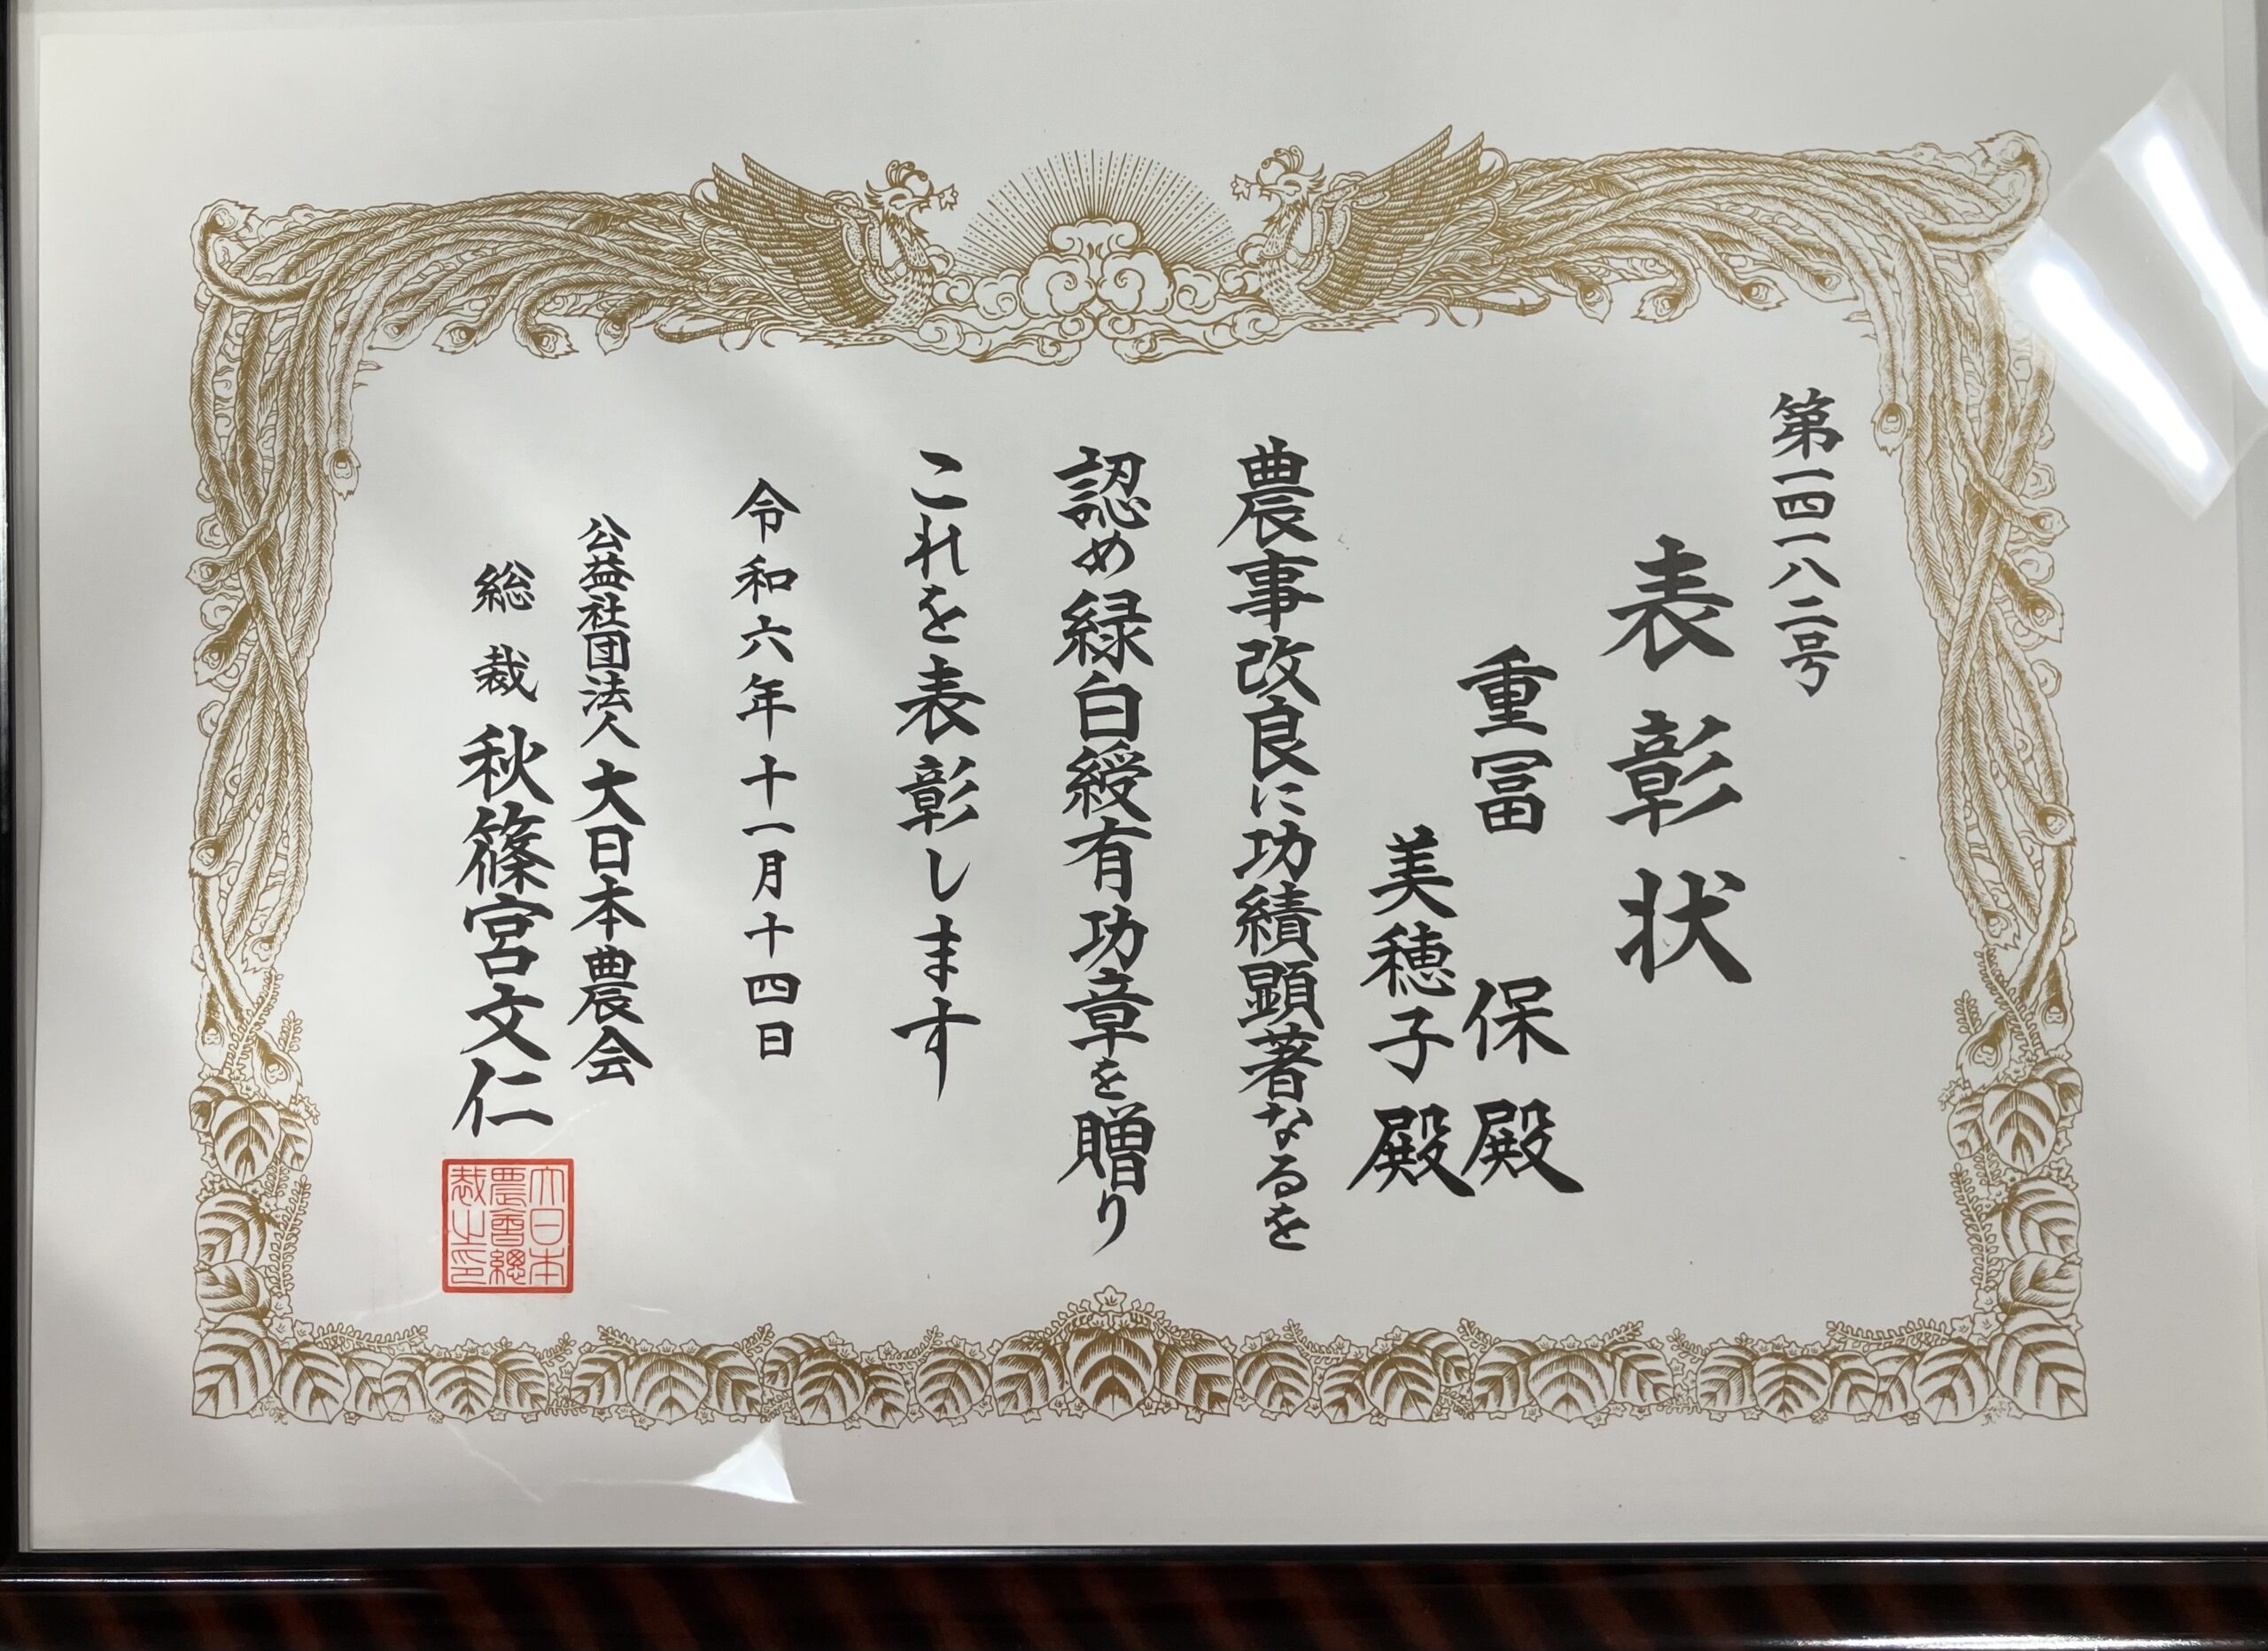 第一四一八二号
表彰状
重冨 保殿
美穂子殿
農事改良に功績顕著なるを
認め緑白綬有功章を贈り
これを表彰します
令和六年十一月十四日
公益社団法人大日本農会
総裁 秋篠宮文仁
大日本
農會總
裁之印